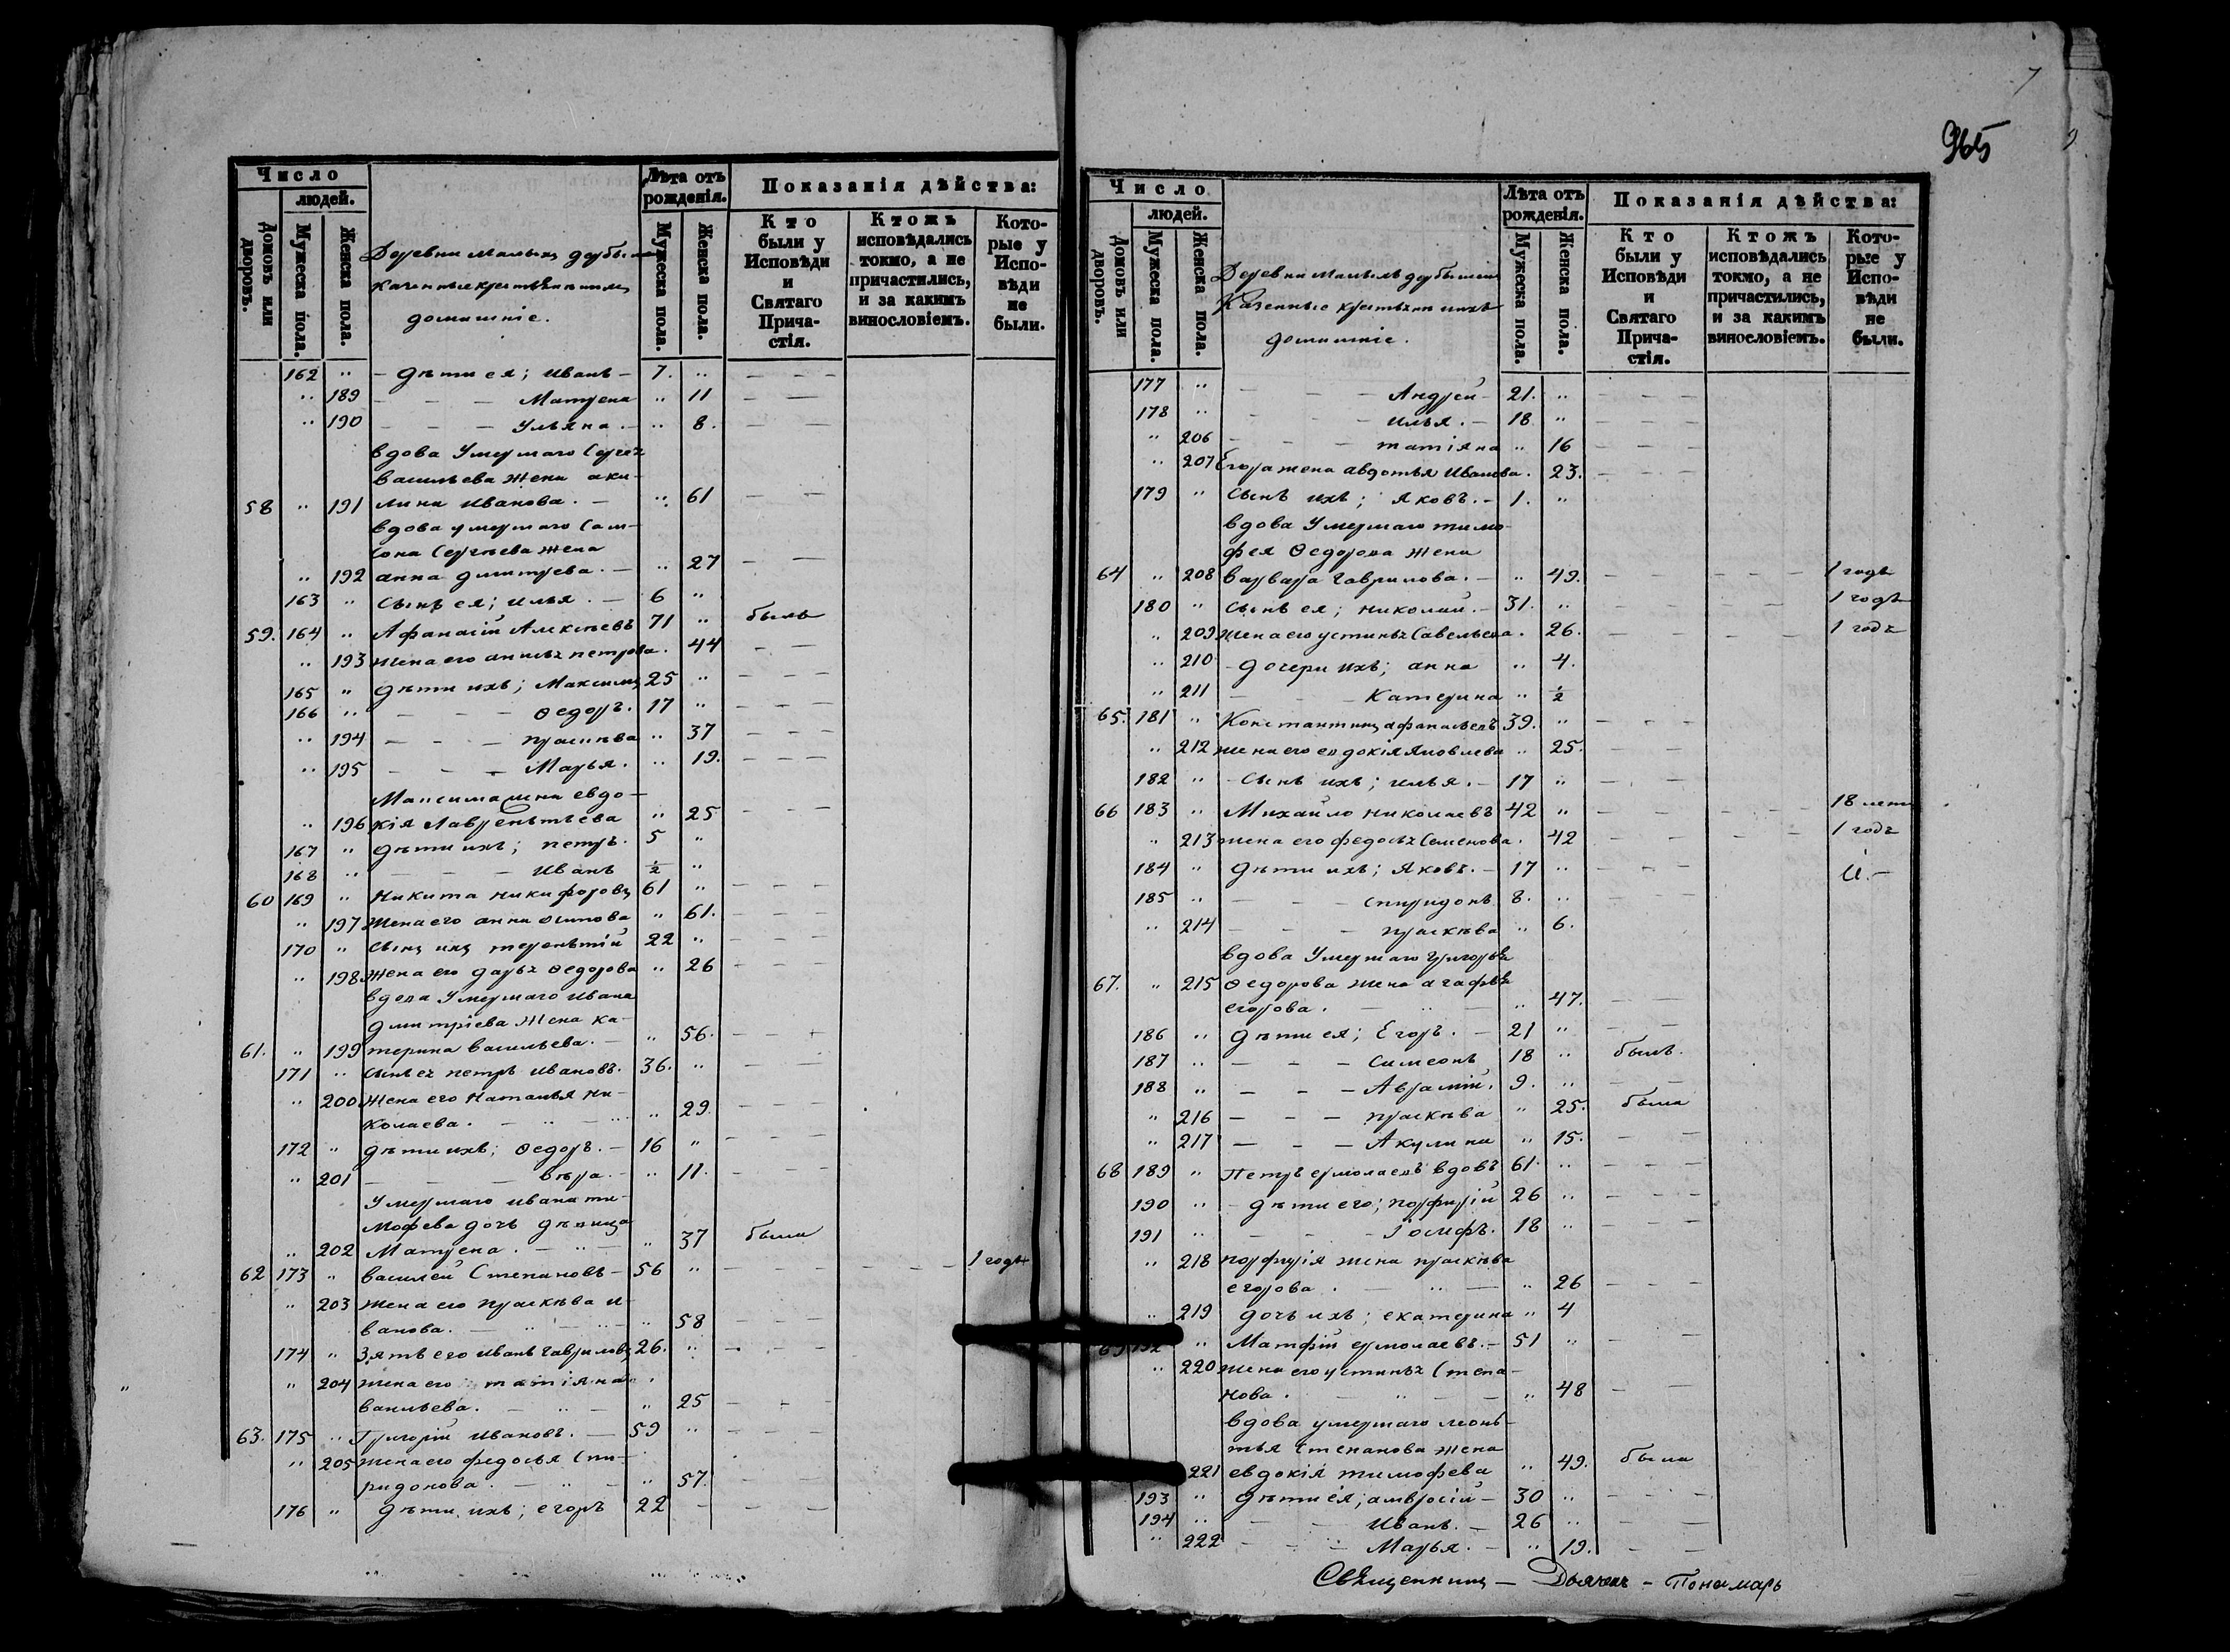 Число
людей.
Домовъ или дворовъ.
Мужеска пола.
Женска пола.
Деревни Малыхъ
казенные крестьяне и ихъ
домашніе.
Лѣта отъ рожденія.
Мужеска пола.
Женска пола.
Показанія дѣйства:
Кто были у Исповѣди и Святаго Причастія.
Ктожъ исповѣдались токмо, а не причастились, и за какимъ винословіемъ.
Которые у Исповѣди не были.
162 " - дѣти ея; Иванъ - 7. " - - -
" 189 - - - Матрена " 11 - -
" 190 - - - Ульяна. - " 8. - -
вдова Умершаго Сергея
васильева жена аки-
58 " 191 лина Иванова. - " 61 - -
вдова умершаго Сам-
сона Сергѣева жена
" 192 анна дмитрева. - " 27 - -
163 " Сынъ ея; илья. - 6 "
59. 164 " Афанасій Алексѣевъ 71 " былъ
" 193 жена его анисья петрова. 44 - -
165 " дѣти ихъ; Максимъ 25 " - - -
166 " - - - Ѳедоръ. 17 " - - -
" 194 - - - прасковья " 37 - - -
" 195 - - - Марья. " 19. - - -
Максима жена евдо-
" 196 кія Лаврентьева " 25 - - -
167 " дѣти ихъ; петръ. 5 "
168 " - - - Иванъ ½ "
60 169 " Никита никифоровъ 61 " - - -
" 197 Жена его анна осипова " 61. - - -
170 " сынъ ихъ терентій 22 " - - -
" 198 Жена его дарья Ѳедорова " 26 - - -
вдова Умершаго Ивана
дмитріева Жена ка-
61. " 199 терина васильева. - " 56. - - -
171 " сынъ ея петръ Ивановъ. 36. " - -
" 200 Жена его Наталья Ни-
колаева. - " - " 29 - - -
172 " дѣти ихъ; Ѳедоръ. - 16 " - - -
" 201 - - - вѣра. - " 11. - - -
Умершаго Ивана ти-
мофева дочь дѣвица
" 202 Матрена. - " - " 37 была
62 173 " василей Степановъ - 56 " - - - - - - 1 годъ
" 203 жена его прасковья и-
ванова. - " - " 58 - - -
174 " Зять его Иванъ Гавриловъ 26. " - - -
" 204 жена его татіяна
васильева. - " - " 25 - - -
63. 175 " Григорій Ивановъ. - 59 " - - -
" 205 жена его федосья Спи-
ридонова. - " - " 57. - - -
176 " дѣти ихъ; егоръ 22 - - -
965
Число
людей.
Домовъ или дворовъ.
Мужеска пола.
Женска пола.
Деревни Малыхъ
Казенные крестьяне ихъ
домашніе.
Лѣта отъ рожденія.
Мужеска пола.
Женска пола.
Показанія дѣйства:
Кто были у Исповѣди и Святаго Причастія.
Ктожъ исповѣдались токмо, а не причастились, и за какимъ винословіемъ.
Которые у Исповѣди не были.
177 " - - Андрей - 21. " - - -
178 " - - илья. - 18 " - - -
" 206 - - - татіяна " 16 - -
" 207 Егора жена авдотья Иванова. 23. - - -
179 " Сынъ ихъ; Яковъ. - 1. "
вдова Умершаго тимо-
фея Ѳедорова жена
64 " 208 варвара Гаврилова. - " 49. - - - - 1 годъ
180 " Сынъ ея; николай. - 31. " - - - - 1 годъ
" 209 жена его устинья Савельева. 26. - - - - 1 годъ
" 210 - дочери ихъ; анна " 4.
" 211 - - Катерина " ½
65. 181 " Константинъ афанасьевъ 39. " - - -
" 212 жена его евдокія Яковлева " 25. - -
182 " - Сынъ ихъ; илья. - 17 " - - -
66 183 " Михайло николаевъ 42 " - - - - 18 летъ
" 213 жена его федосья Семенова. 42 - - - - 1 годъ
184 " дѣти ихъ; Яковъ. - 17 " - - -
185 " - - - спиридонъ 8. "
" 214 - - - прасковья " 6.
вдова Умершаго григорья
67. " 215 Ѳедорова жена агафья
егорова. - " - " 47. - -
186 " дѣти ея; Егоръ. - 21 " - -
187 " - - - Симеонъ 18 " былъ.
188 " - - - Аврамій. 9. " - -
" 216 - - - прасковья " 25. была
" 217 - - - Акулина " 15. - -
68 189 " Петръ ермолаевъ вдовъ 61. " - - -
190 " - дѣти его; порфирій 26 " - - -
191 " - - - Іосифъ. 18 " - - -
" 218 порфирія жена прасковья
егорова. - " - " 26 - - -
" 219 дочь ихъ; екатерина " 4
69 192 " Матфій ермолаевъ. - 51 " - -
" 220 жена его устинья Степа-
нова. - " - " 48 - -
вдова умершаго леонь-
тья Степанова жена
221 евдокія тимофева " 49. была
193 " дѣти ея; амвросій - 30 " - - -
194 " - - Иванъ. - 26 " - - -
" 222 - - - Марья. - " 19. - -
Священникъ - Дьяконъ - Пономарь